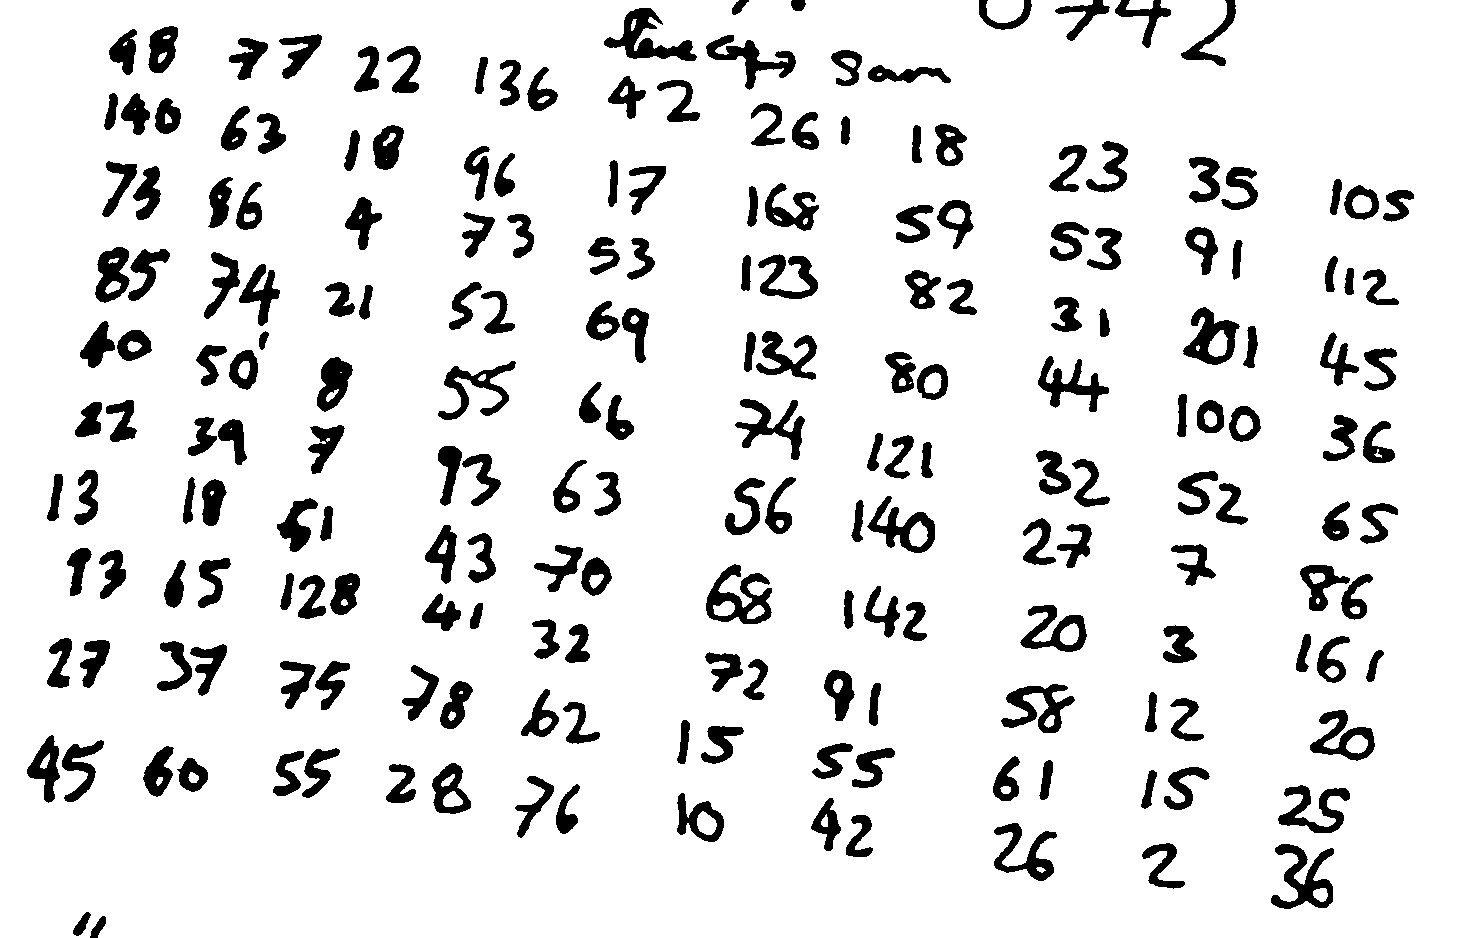 Sam
98 77 22 136 42 261 18 23 35 105
140 63 18 96 17 168 59 53 91 112
73 86 4 73 53 123 82 31 201 45
85 74 21 52 69 132 80 44 100 36
40 50 8 55 66 74 121 32 52 65
22 39 7 93 63 56 140 27 7 86
13 18 51 43 70 68 142 20 3 161
93 65 128 41 32 72 91 58 12 20
27 37 75 78 62 15 55 61 15 25
45 60 55 28 76 10 42 26 2 36